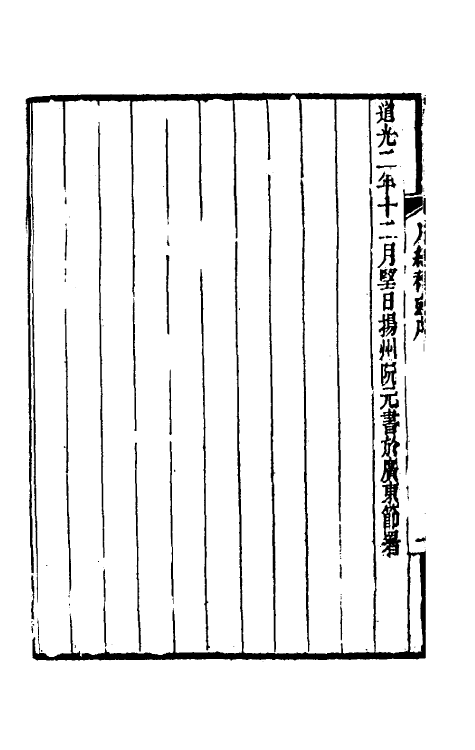 道光二年十二月朢日揚州阮元書於廣東節署